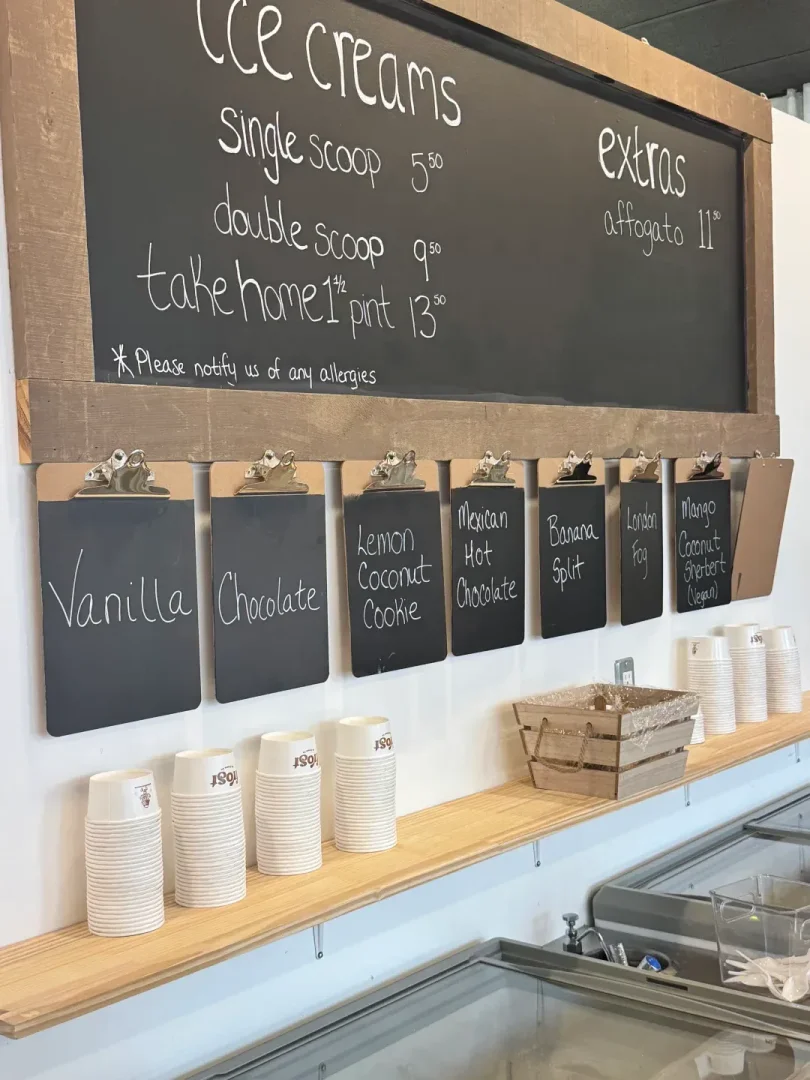 Ice creams
single scoop 5⁵⁰
double scoop 9⁵⁰
take home 1 ½ pint 13⁵⁰
* Please notify us of any allergies
extras
affogato 11⁵⁰
Vanilla
Chocolate
Lemon
Coconut
Cookie
Mexican
Hot
Chocolate
Banana
Split
London
Fog
Mango
Coconut
Sherbert
(Vegan)